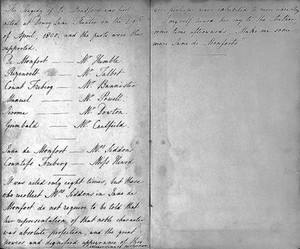 The Tragedy of De Monfort was first
acted at Drury Lane Theatre on the 29th
of April, 1800, and the parts were thus
supported.
De Monfort — Mr Kemble
Rezenvelt — Mr Talbot
Count Freberg — Mr Barrymore
Manuel — Mr Powell
Jerome — Mr Dowton
Grimbald — Mr Caulfield
Jane de Monfort — Mrs Siddons
Countess Freberg — Miss Heard
It was acted only eight times, but those
who recollect Mrs Siddons in Jane de
Monfort do not require to be told that
her representation of that noble character
was absolute perfection, and the great
power and dignified appearance of
her perhaps
myself to the Author
some time afterwards. Make me some
more Jane de Monforts